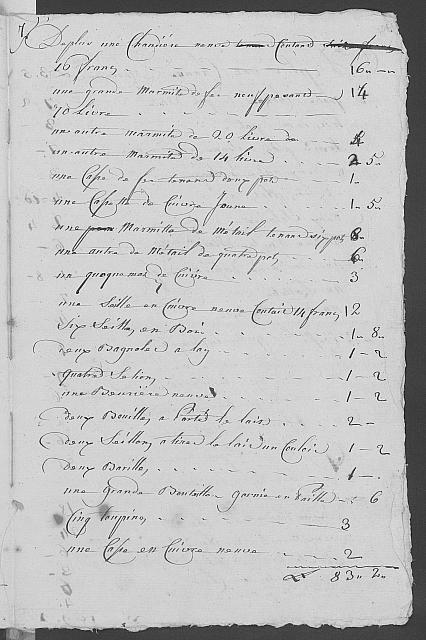 Depuis une Chaudière neuve Contant
16 francs 16 "
une grande Marmite de fer neuf pesant 14
70 Livre
un autre marmite de 20 livre de 4
un autre Marmite de 14 livre 2 " 5 "
une Casse de fer tenant deux pot 1 "
une Cassette de Cuivre Jaune 1 " 5 "
une Marmitte de Métail tenant six pot, 8 "
une autre de Métail de quatre pot, 6
un quoquemar de Cuivre 3
une Seille en Cuivre neuve Contait 14 francs 12
Six Seilles en Bois 1 " 8 "
deux Bagnoles a 1 - 2
quatre 1 - 2
une Beurrière neuve 1 - 2
deux Bouilles a Porté le lait 2 -
deux Seillons a tirer le lait un Couloir 1 - 2
deux Barilles 1 -
une grande Bouteille garnie en Paille - 6
Cinq toupines 3
une Casse en Cuivre neuve 2
83 " 2 "